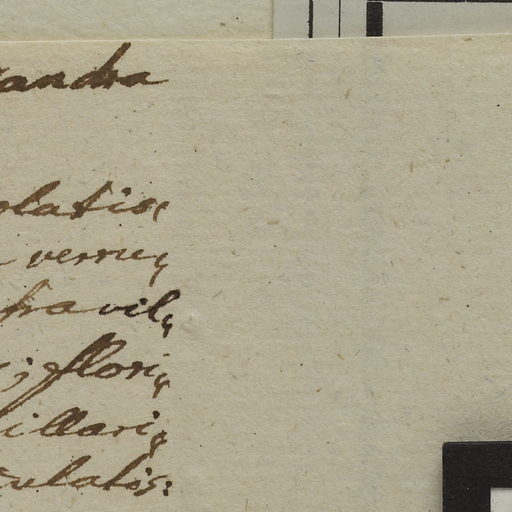 andra
olatis
verru
fra vil
; flori
illari
culatis: